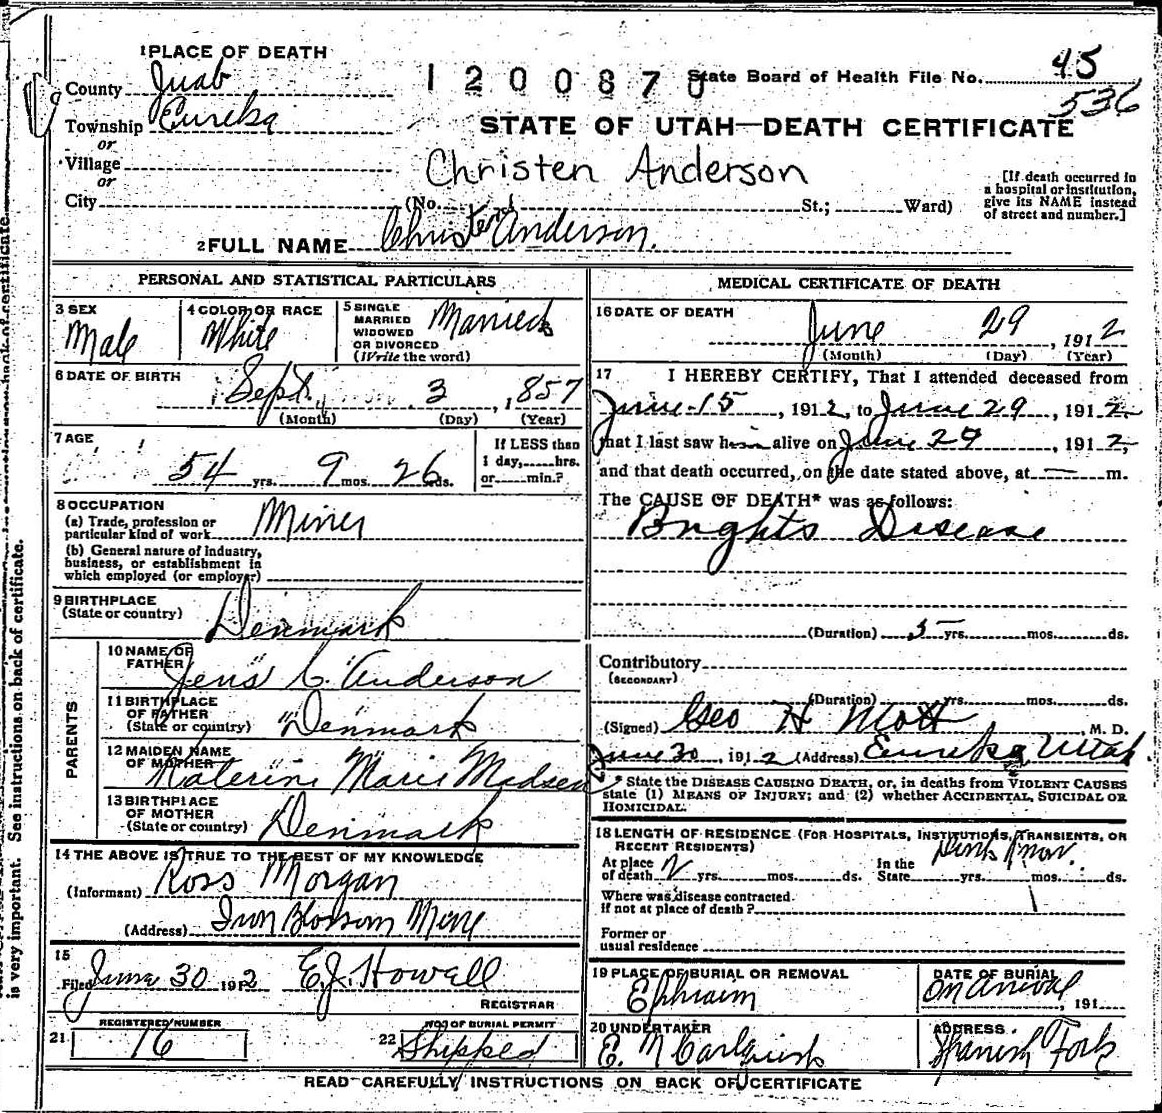 1 PLACE OF DEATH
County Juab
1200870
State Board of Health File No. 45
536
Township Eureka
or
STATE OF UTAH—DEATH CERTIFICATE
Village
or
Christen Anderson
[If death occurred in
a hospital or institution,
give its NAME instead
of street and number.]
City (No. St.; Ward)
2 FULL NAME Christen Anderson.
PERSONAL AND STATISTICAL PARTICULARS
3 SEX
Male
4 COLOR OR RACE
White
5 SINGLE
MARRIED
WIDOWED
OR DIVORCED
(Write the word)
Married
6 DATE OF BIRTH
Sept. 3, 1857
(Month) (Day) (Year)
7 AGE
54 yrs. 9 mos. 26 ds.
If LESS than
1 day, hrs.
or min.?
8 OCCUPATION
(a) Trade, profession or
particular kind of work Miner
(b) General nature of industry,
business, or establishment in
which employed (or employer)
9 BIRTHPLACE
(State or country) Denmark
PARENTS
10 NAME OF
FATHER Jens C. Anderson
11 BIRTHPLACE
OF FATHER
(State or country) Denmark
12 MAIDEN NAME
OF MOTHER Katerin Marie Madsen
13 BIRTHPLACE
OF MOTHER
(State or country) Denmark
14 THE ABOVE IS TRUE TO THE BEST OF MY KNOWLEDGE
(Informant) Ross Morgan
(Address) Iron Blossom Mine
15
Filed June 30 1912 E.J. Howell
REGISTRAR
21 REGISTERED NUMBER
16
22 NO. OF BURIAL PERMIT
Shipped
MEDICAL CERTIFICATE OF DEATH
16 DATE OF DEATH
June 29, 1912
(Month) (Day) (Year)
17 I HEREBY CERTIFY, That I attended deceased from
June 15, 1912, to June 29, 1912
that I last saw him alive on June 29 1912,
and that death occurred, on the date stated above, at — m.
The CAUSE OF DEATH* was as follows:
Brights Disease
(Duration) 5 yrs. mos. ds.
Contributory
(SECONDARY)
(Duration) yrs. mos. ds.
(Signed) Geo H Mott M. D.
June 30, 1912 (Address) Eureka, Utah
* State the DISEASE CAUSING DEATH, or, in deaths from VIOLENT CAUSES
state (1) MEANS OF INJURY; and (2) whether ACCIDENTAL, SUICIDAL OR
HOMICIDAL.
18 LENGTH OF RESIDENCE (FOR HOSPITALS, INSTITUTIONS, TRANSIENTS, OR
RECENT RESIDENTS)
At place
of death yrs. mos. ds.
In the
State yrs. mos. ds.
Where was disease contracted
If not at place of death?
Former or
usual residence
19 PLACE OF BURIAL OR REMOVAL
Ephraim
DATE OF BURIAL
On Arrival, 191
20 UNDERTAKER
E. M Carlquist
ADDRESS
Spanish Fork
READ CAREFULLY INSTRUCTIONS ON BACK OF CERTIFICATE
is very important. See instructions on back of certificate.